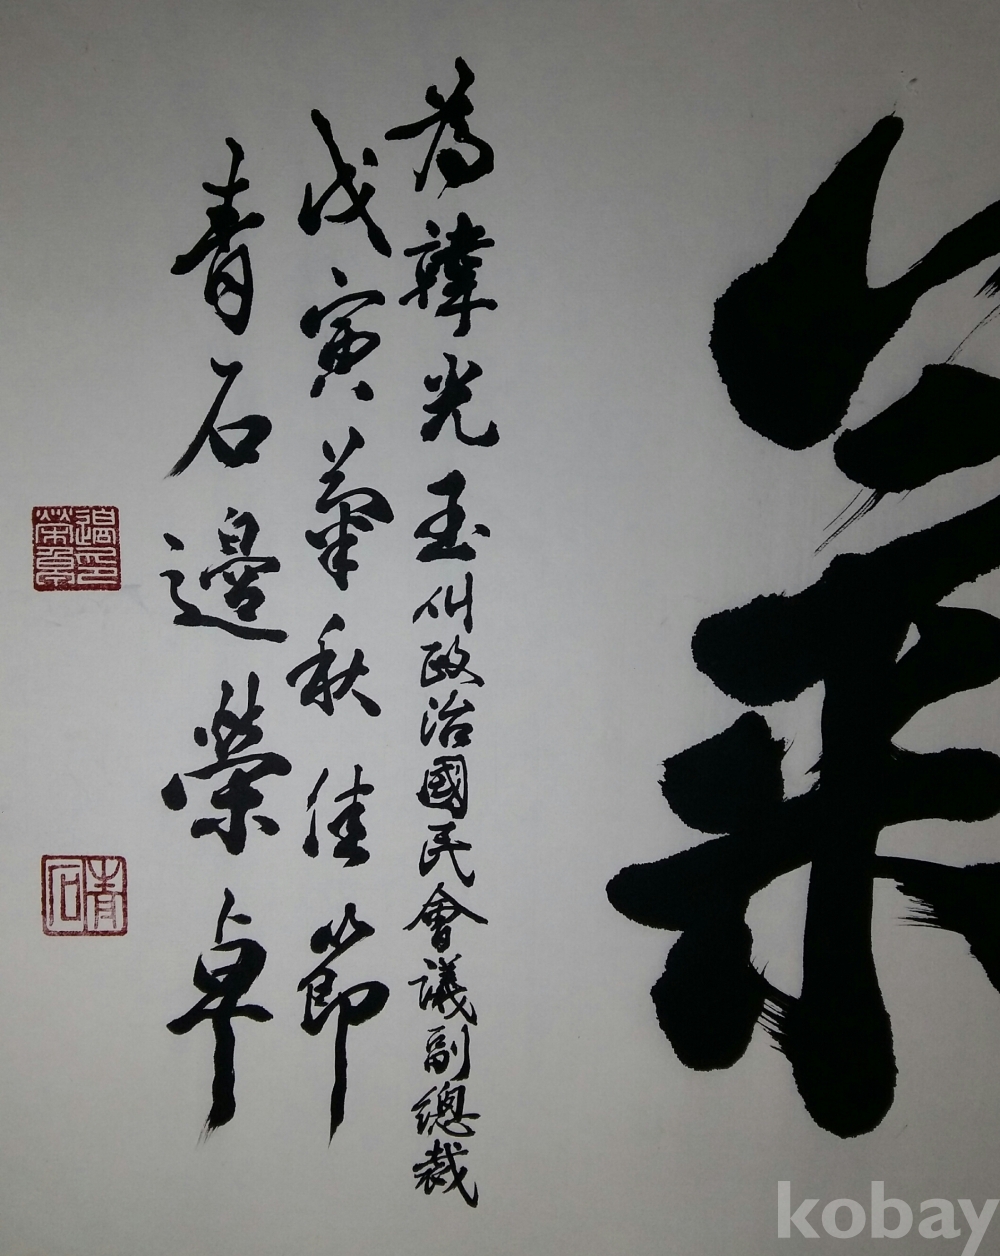 為韓光玉새政治國民會議副總裁
戊寅菊秋佳節
青石邊榮卓
青石
kobay